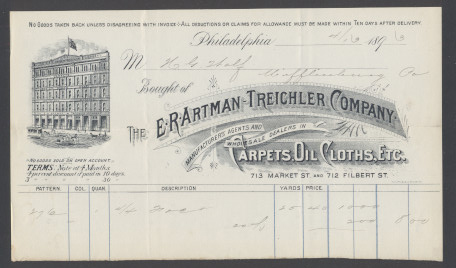 NO GOODS TAKEN BACK UNLESS DISAGREEING WITH INVOICE. ALL DEDUCTIONS OR CLAIMS FOR ALLOWANCE MUST BE MADE WITHIN TEN DAYS AFTER DELIVERY.
Philadelphia 189
M H G Wolf
Mifflinburg Pa
Bought of
THE E.R. ARTMAN-TREICHLER COMPANY
MANUFACTURERS AGENTS AND WHOLESALE DEALERS IN
CARPETS, OIL CLOTHS, ETC.
713 MARKET ST. AND 712 FILBERT ST.
NO GOODS SOLD ON OPEN ACCOUNT.
TERMS:
PATTERN. COL. QUAN. DESCRIPTION YARDS PRICE
20 40 1000
200 800